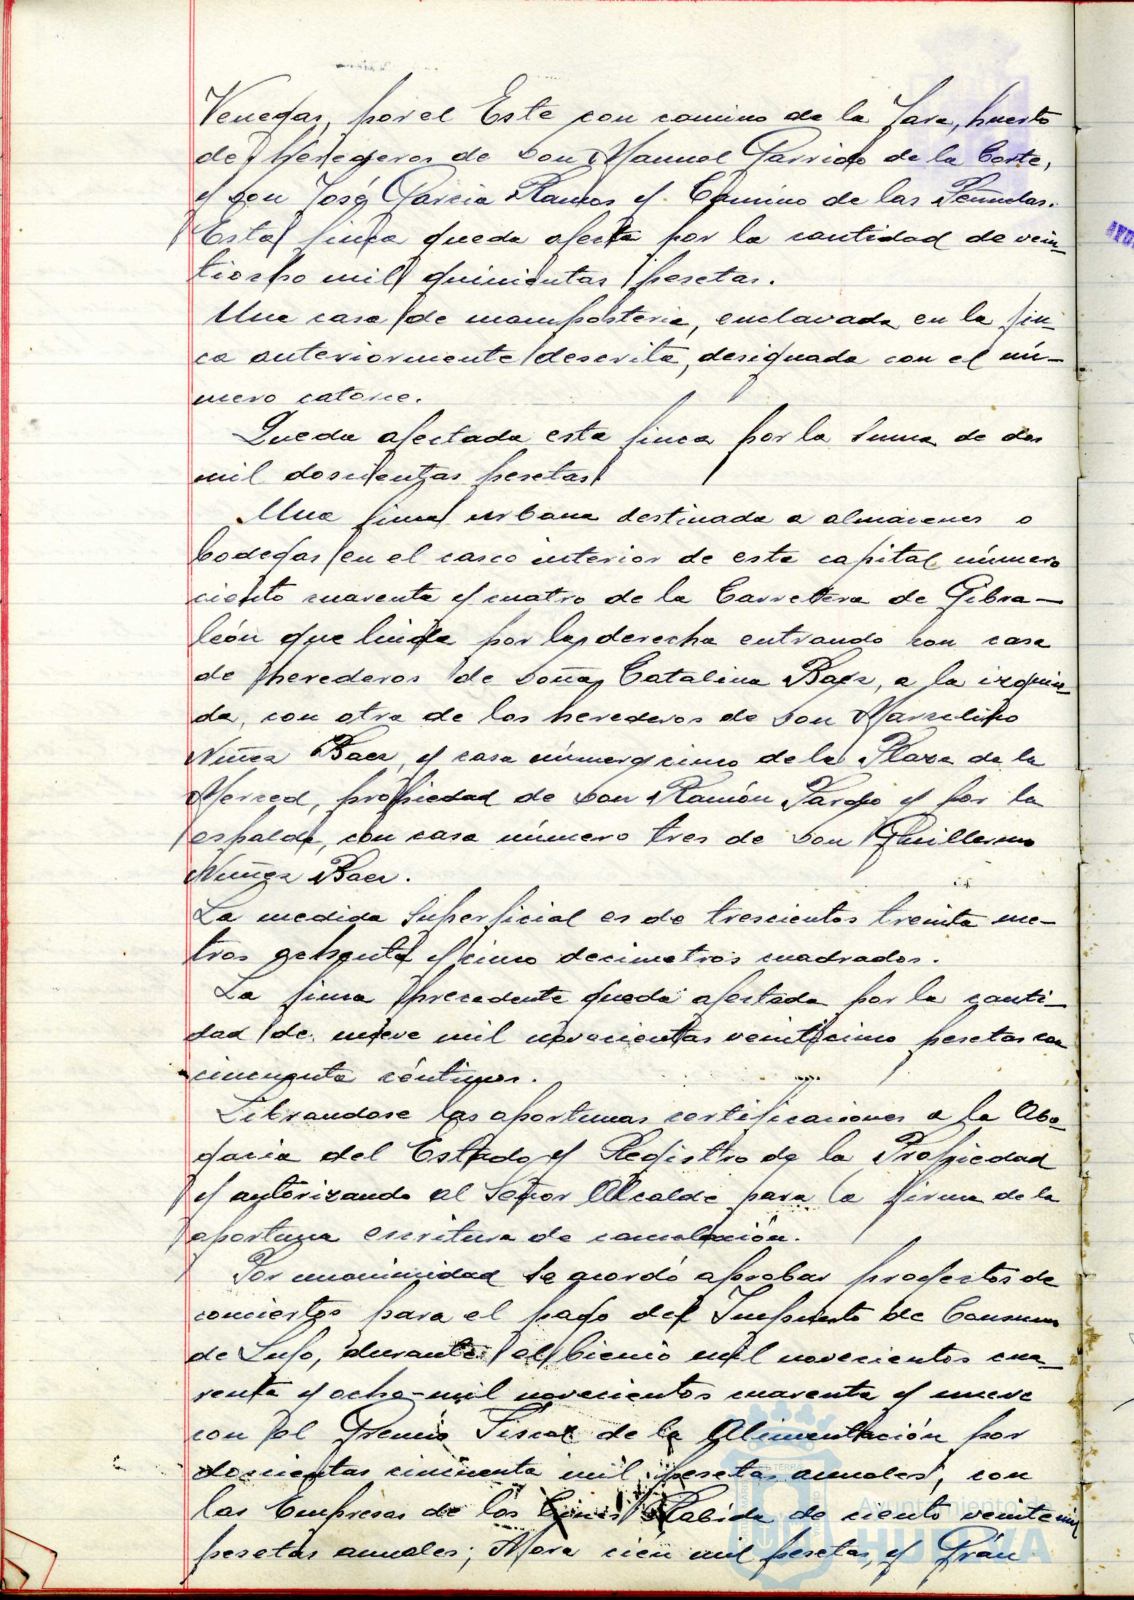 Venegas, por el Este con camino de la Jara, huerto
de Herederos de Don Manuel Garrido de la Corte,
y Don José García Ramos y Camino de las Peñuelas.
Esta finca queda afecta por la cantidad de vein-
tiocho mil quinientas pesetas.
Una casa de mampostería, enclavada en la fin-
ca anteriormente descrita, designada con el nú-
mero catorce.
Queda afectada esta finca por la suma de dos
mil doscientas pesetas.
Una finca urbana destinada a almacenes o
bodegas en el casco interior de esta capital, número
ciento cuarenta y cuatro de la Carretera de Gibra-
león que linda por la derecha entrando con casa
de herederos de Doña Catalina Baez, a la izquier-
da, con otra de los herederos de Don Marcelino
Nuñez Baez, y casa número cinco de la Plaza de la
Merced, propiedad de Don Ramón Vargo y por la
espalda, con casa número tres de Don Guillermo
Nuñez Baez.
La medida superficial es de trescientos treinta me-
tros ochenta y cinco decimetros cuadrados.
La finca precedente queda afectada por la canti-
dad de nueve mil novecientas veinticinco pesetas con
cincuenta céntimos.
Librandose las oportunas certificaciones a la Abo-
gacia del Estado y Registro de la Propiedad
y autorizando al Señor Alcalde para la firma de la
oportuna escritura de cancelación.
Por unanimidad se acordó aprobar proyectos de
conciertos para el pago del Impuesto de Consumos
de Lujo, durante el bienio mil novecientos cua-
renta y ocho-mil novecientos cuarenta y nueve
con el Gremio Fiscal de la Alimentación por
doscientas cincuenta mil pesetas anuales, con
las Empresas de los Cines Rabida de ciento veinte mil
pesetas anuales; Mora cien mil pesetas, y Gran
Ayuntamiento de
HUELVA